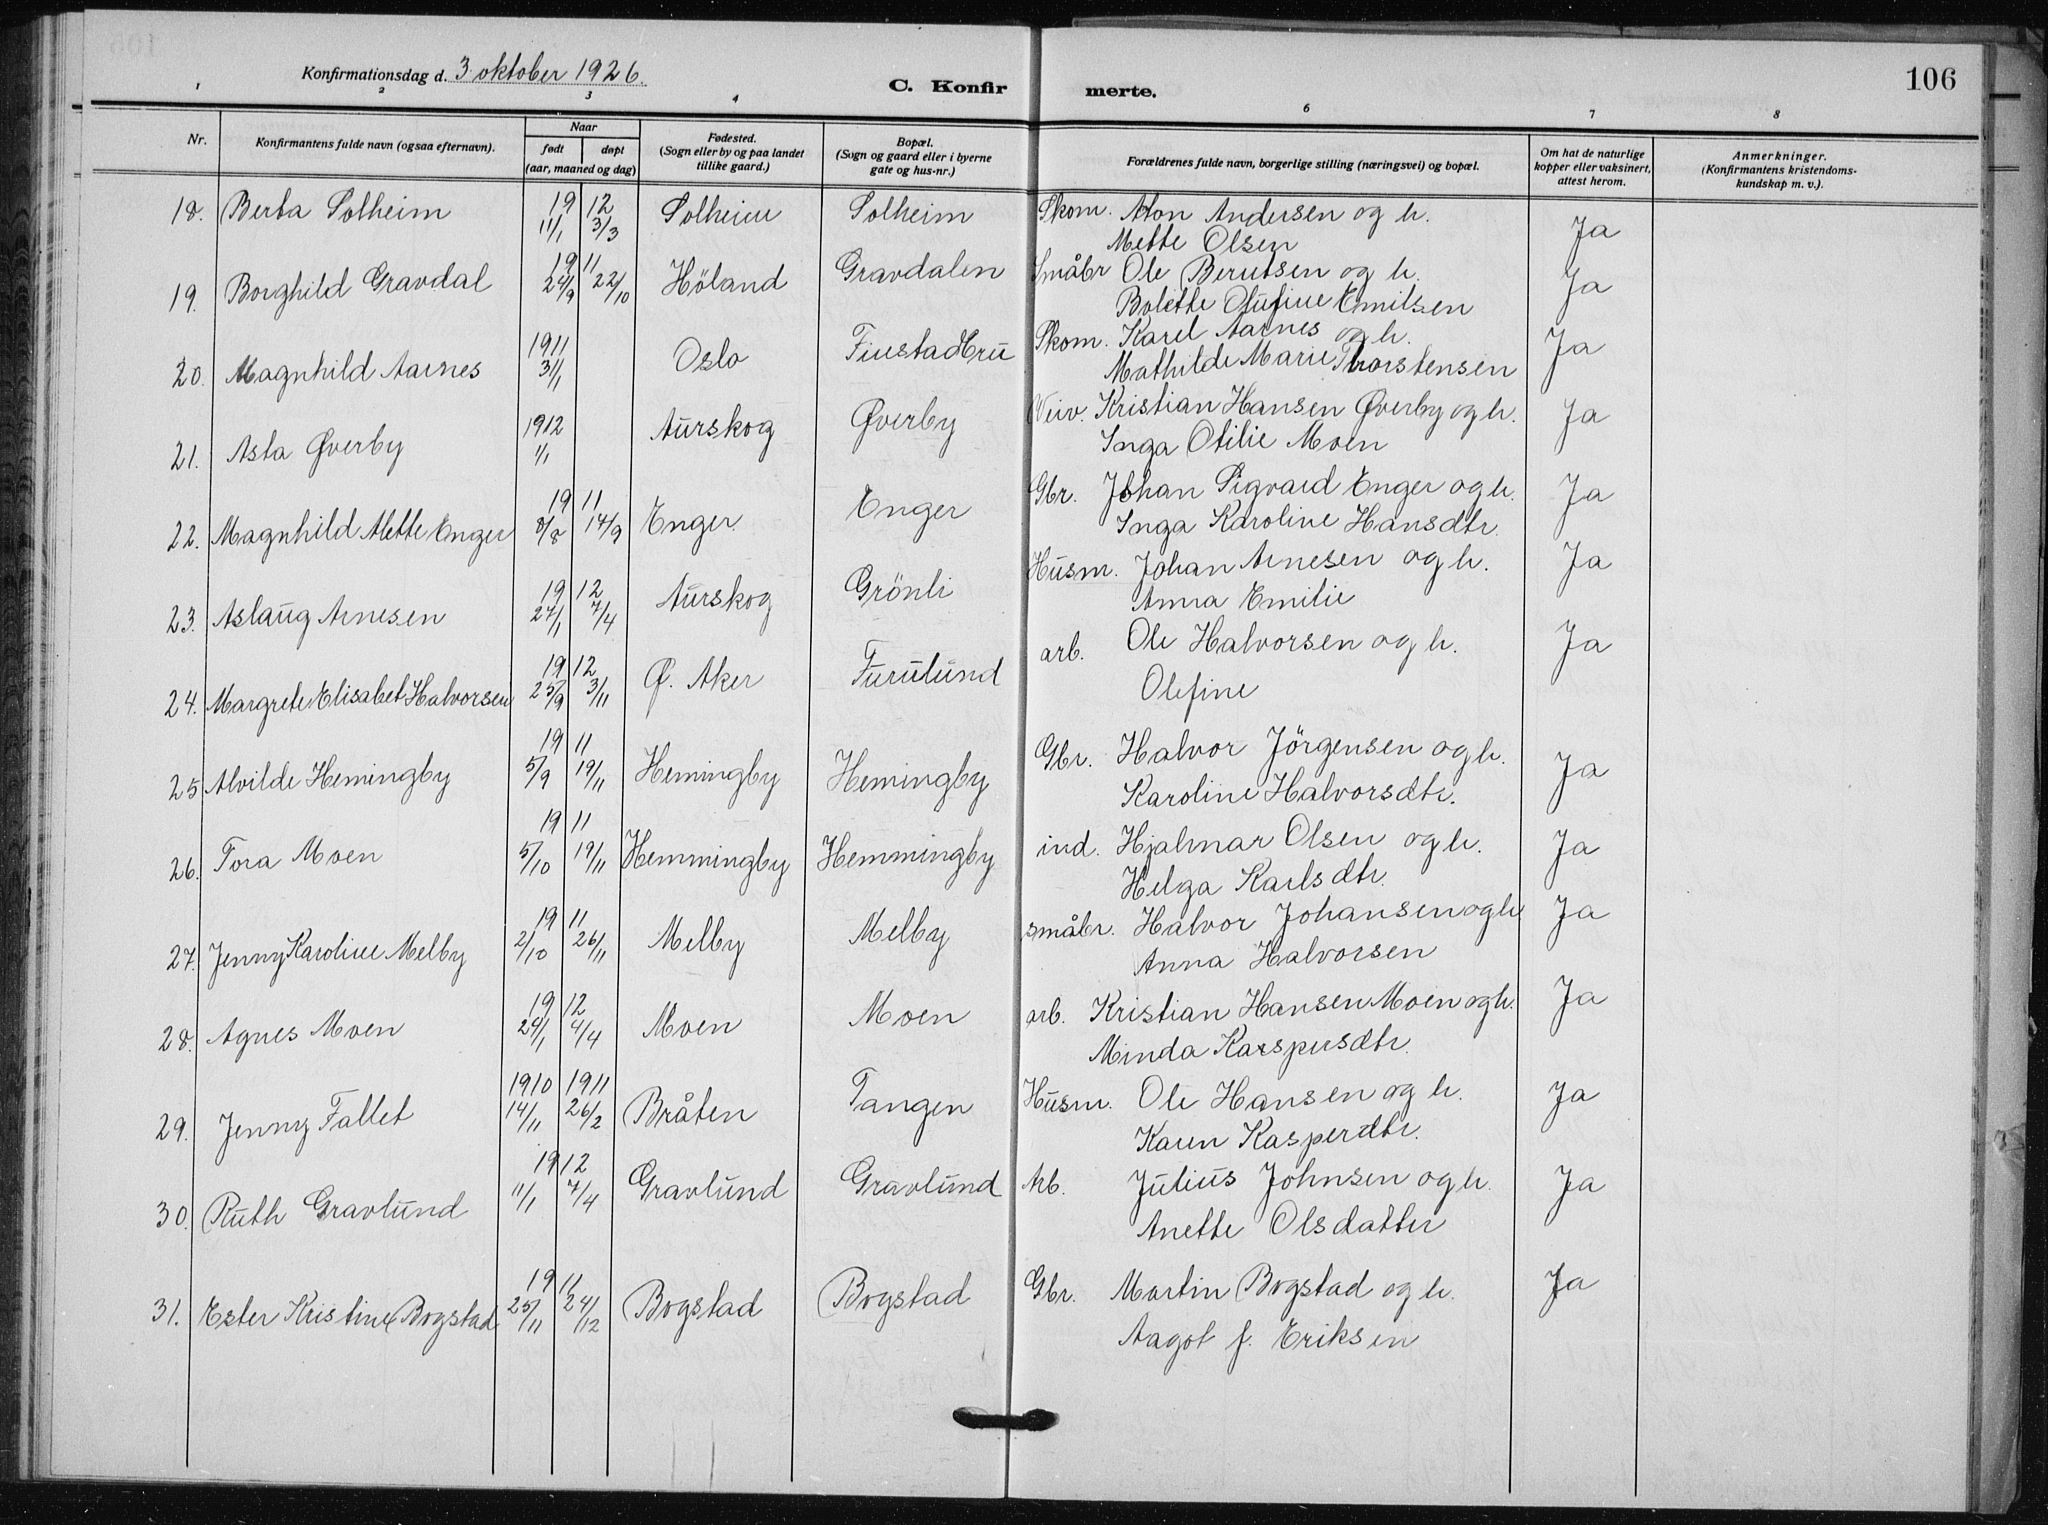 106
Konfirmationsdag d. 3 oktober 1926.
C. Konfirmerte.
1 2 3 4 6 7 8
Nr. Konfirmantens fulde navn (ogsaa efternavn). Naar født døpt (aar, maaned og dag) Fødested. (Sogn eller by og paa landet tillike gaard.) Bopæl. (Sogn og gaard eller i byerne gate og hus-nr.) Forældrenes fulde navn, borgerlige stilling (næringsvei) og bopæl. Om hat de naturlige kopper eller vaksinert, attest herom. Anmerkninger. (Konfirmantens kristendomskundskap m. v.).
18. Berta Solheim 19 12 11/1 3/3 Solheim Solheim Skom. Anton Andersen og h. Ja
Mette Olsen
19. Borghild Gravdal 19 11 24/9 22/10 Höland Gravdalen Småbr Ole Berntsen og h. Ja
Bolette Olufine Emilsen
20. Magnhild Aarnes 1911 31/1 Oslo Finstadbru Skom. Karel Aarnes og h. Ja
Mathilde Marie Thorstensen
21. Asta Øverby 1912 1/1 Aurskog Øverby Kristian Hansen Øverby og h. Ja
Inga Otilie Moen
22. Magnhild Mette Enger 19 11 8/8 17/9 Enger Enger Gbr. Johan Sigvard Enger og h. Ja
Inga Karoline Hansdtr.
23. Aslaug Arnesen 19 12 27/1 7/4 Aurskog Grönli Husm. Johan Arnesen og h. Ja
Anna Emilie
24. Margrete Elisabet Halvorsen 19 12 25/9 3/11 Ø. Aker Furulund arb. Ole Halvorsen og h. Ja
Olefine
25 Alvilde Hemingby 19 11 5/9 19/11 Hemingby Hemingby Gbr. Halvor Jörgensen og h. Ja
Karoline Halvorsdtr.
26. Tora Moen 19 11 5/10 19/11 Hemmingby Hemmingby ind. Hjalmar Olsen og h. Ja
Helga Karlsdtr.
27. Jenny Karoline Melby 19 11 2/10 26/11 Melby Melby småbr. Halvor Johansen og h Ja
Anna Halvorsen
28. Agnes Moen 19 12 24/1 4/4 Moen Moen arb. Kristian Hansen Moen og h. Ja
Minda Karspersdtr.
29. Jenny Fallet 1910 1911 14/11 26/2 Bråten Tangen Husm. Ole Hansen og h. Ja
Karen Kasperdtr.
30. Ruth Gravlund 1912 11/1 7/4 Gravlund Gravlund Arb. Julius Johnsen og h. Ja
Anette Olsdatter
31. Ester Kristine Bogstad 19 11 25/11 24/12 Bogstad Bogstad Gbr. Martin Bogstad og h. Ja
Aagot f. Eriksen